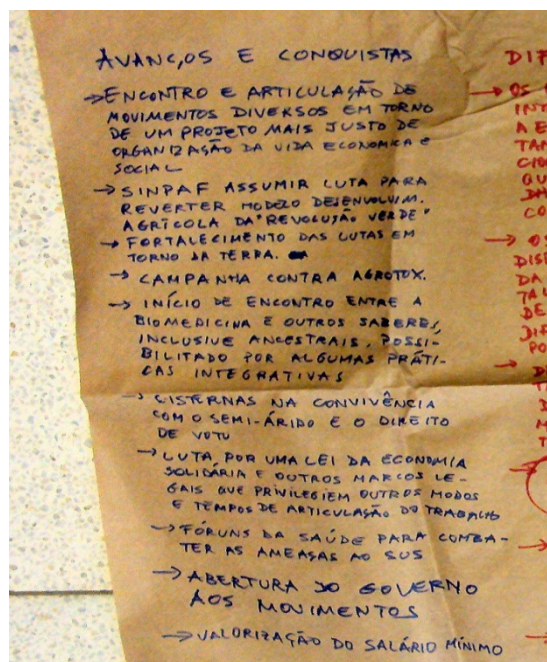 AVANÇOS E CONQUISTAS
→ ENCONTRO E ARTICULAÇÃO DE
MOVIMENTOS DIVERSOS EM TORNO
DE UM PROJETO MAIS JUSTO DE
ORGANIZAÇÃO DA VIDA ECONOMICA E
SOCIAL
→ SINPAF ASSUMIR LUTA PARA
REVERTER MODELO DESENVOLVIM.
AGRÍCOLA DA "REVOLUÇÃO VERDE"
→ FORTALECIMENTO DAS LUTAS EM
TORNO DA TERRA.
→ CAMPANHA CONTRA AGROTOX.
→ INÍCIO DE ENCONTRO ENTRE A
BIOMEDICINA E OUTROS SABERES,
INCLUSIVE ANCESTRAIS, POSSI-
BILITADO POR ALGUMAS PRÁTI-
CAS INTEGRATIVAS
→ CISTERNAS NA CONVIVÊNCIA
COM O SEMI-ÁRIDO E O DIREITO
DE VOTO
→ LUTA POR UMA LEI DA ECONOMIA
SOLIDÁRIA E OUTROS MARCOS LE-
GAIS QUE PRIVILEGIEM OUTROS MODOS
E TEMPOS DE ARTICULAÇÃO DO TRABALHO
→ FÓRUNS DA SAÚDE PARA COMBA-
TER AS AMEAÇAS AO SUS
→ ABERTURA DO GOVERNO
AOS MOVIMENTOS
→ VALORIZAÇÃO DO SALÁRIO MÍNIMO